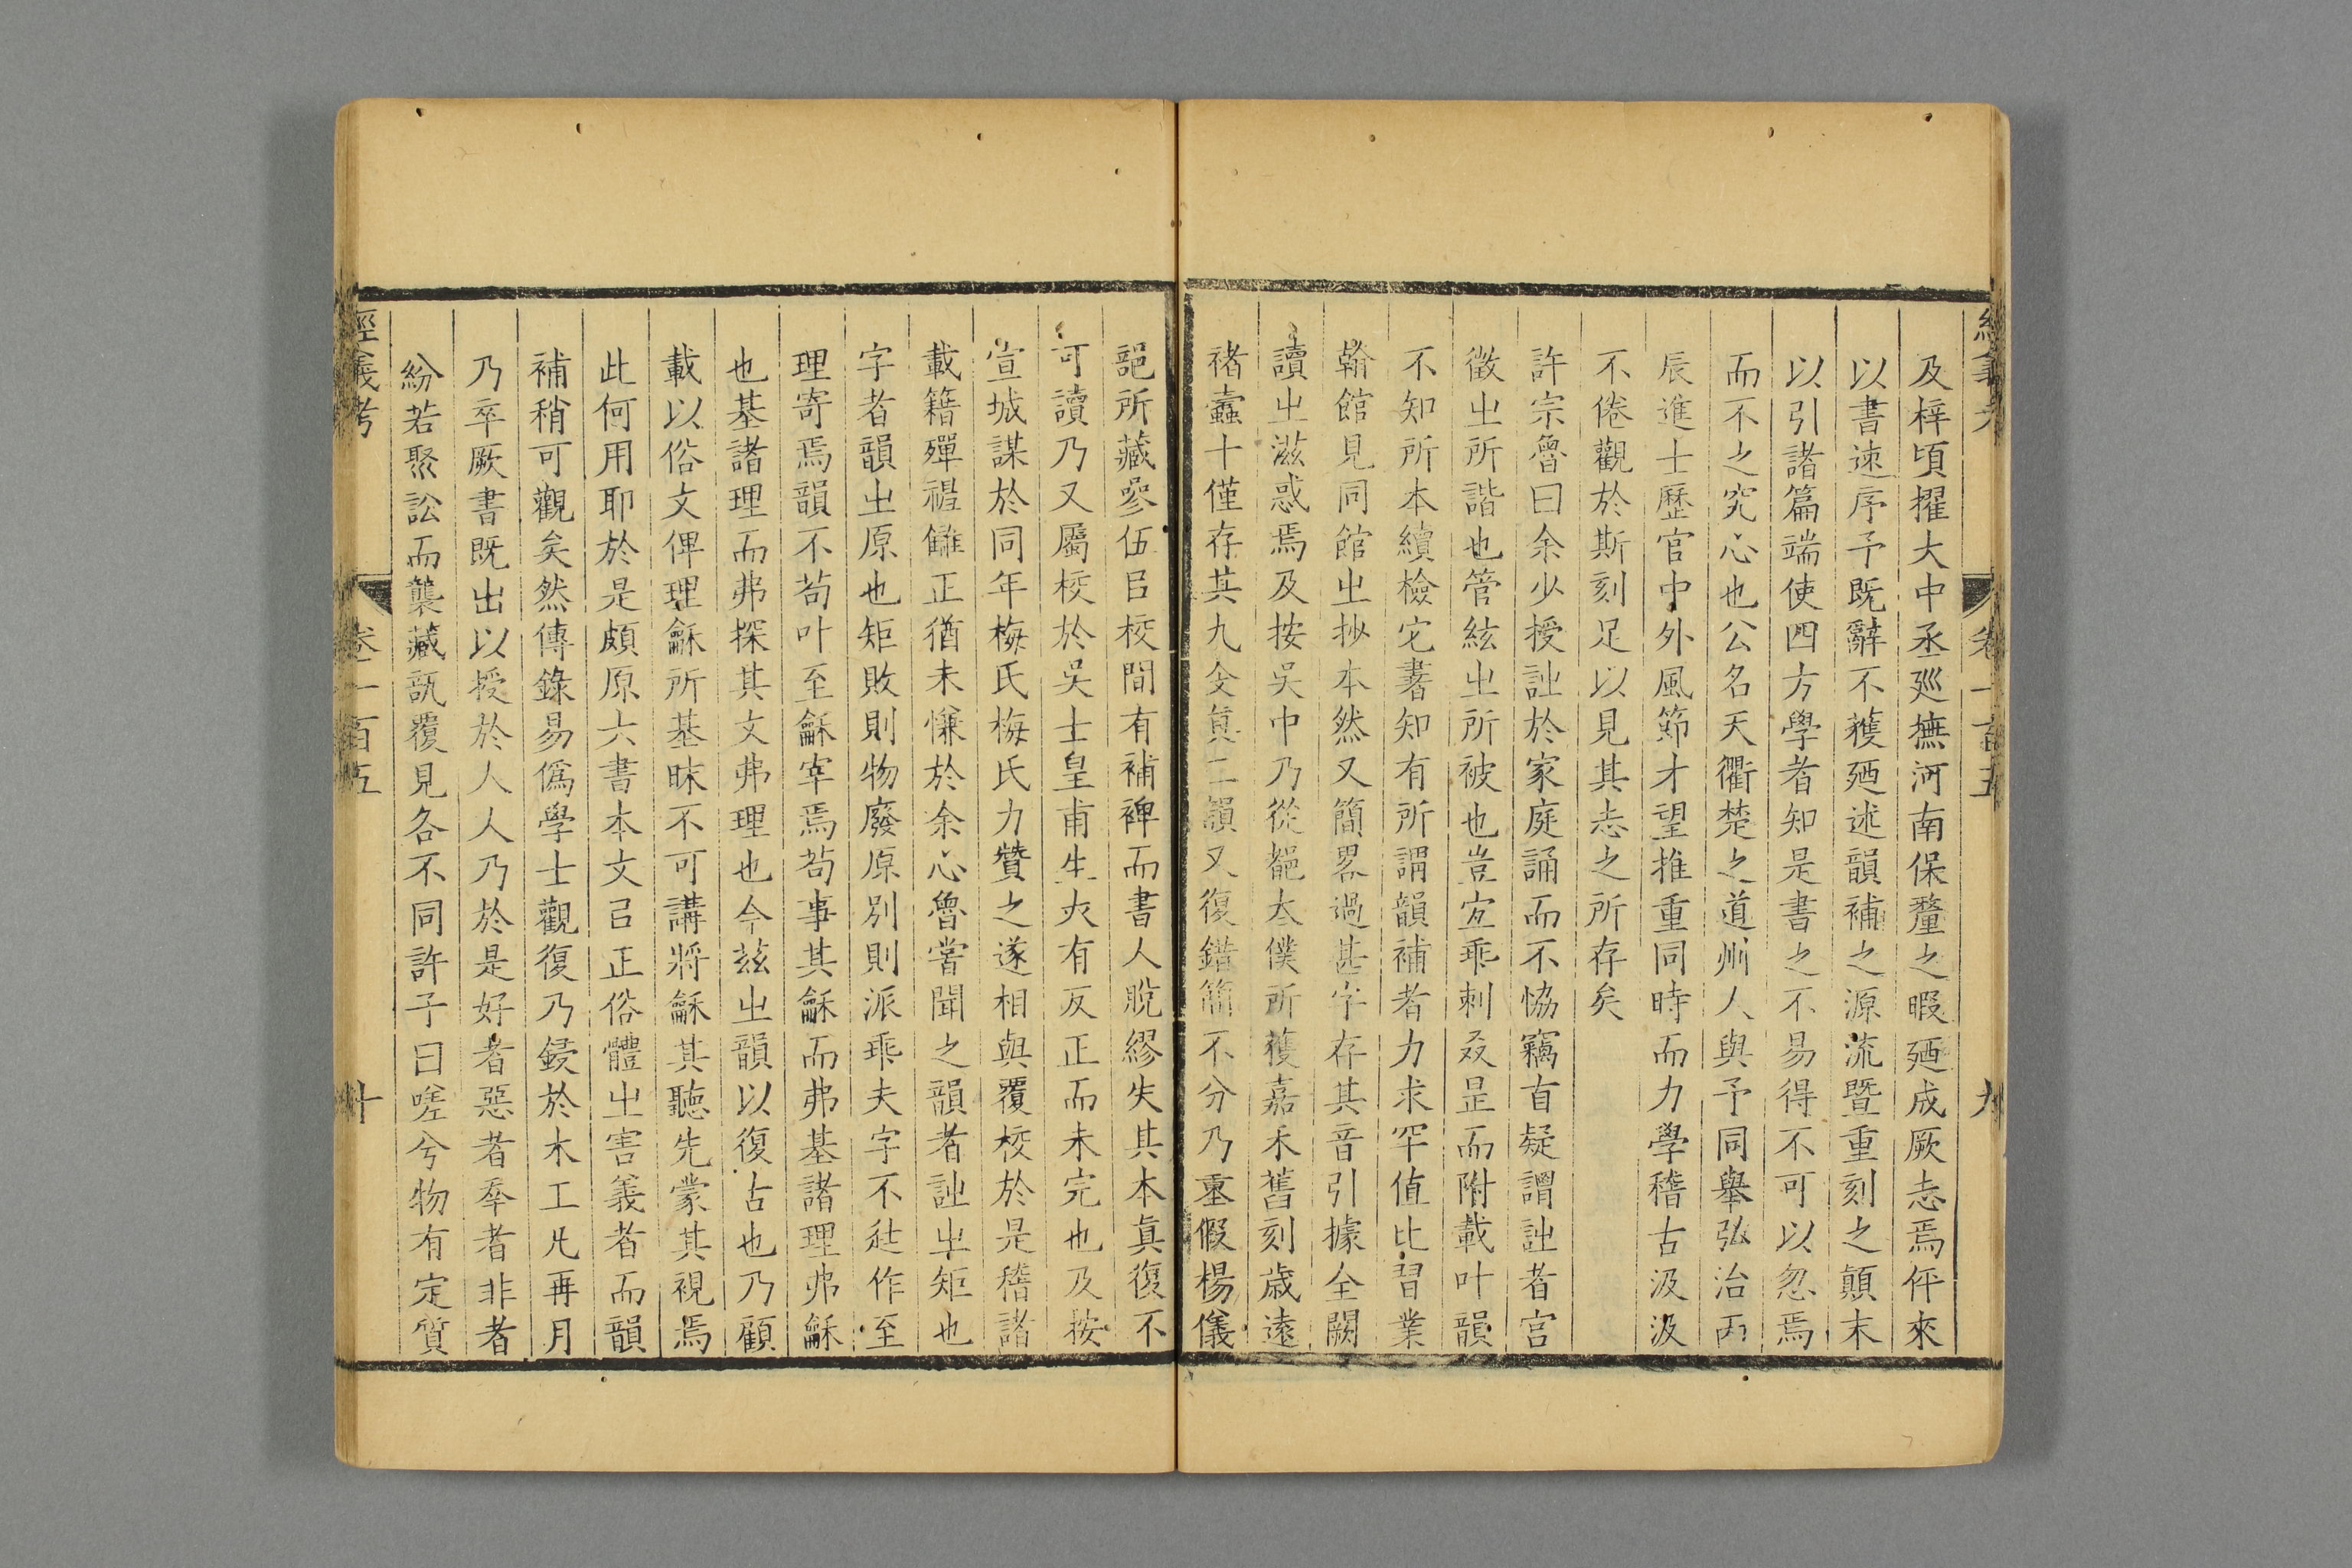 經義考 卷一百五 九
及梓頃擢大中丞廵撫河南保釐之暇廼成厥志焉伻來
以書速序予既辭不獲廼述韻補之源流曁重刻之顛末
以引諸篇端使四方學者知是書之不易得不可以忽焉
而不之究心也公名天衢楚之道州人與予同舉弘治丙
辰進士歷官中外風節才望推重同時而力學稽古汲汲
不倦觀於斯刻足以見其志之所存矣
許宗魯曰余少授詿於家庭誦而不恊竊𥄂疑謂詿者宫
徵㞢所諧也管絃㞢所被也豈宐乖刺叒昰而附載叶韻
不知所本續檢宅書知有所謂韻補者力求罕值比習業
翰館見同館㞢抄本然又簡畧過甚字存其音引據全闕
讀㞢滋惑焉及按吳中乃從郶太僕所獲嘉禾舊刻歲遠
褚蠹十僅存其九攵眞二韻又復錯簡不分乃重假楊儀
郶所藏參伍㠯校間有補裨而書人脫繆失其本眞復不
可讀乃又屬校於吳士皇甫生夾有反正而未完也及按
宣城謀於同年梅氏梅氏力贊之遂相與覆校於是稽諸
載籍殫褆讎正猶未慊於余心魯嘗聞之韻者詿㞢矩也
字者韻㞢原也矩敗則物廢原別則派乖夫字不迋作至
理寄焉韻不苟叶至龢宰焉苟事其龢而弗基諸理弗龢
也基諸理而弗探其文弗理也今兹㞢韻以復古也乃顧
載以俗文俾理龢所基昧不可講將龢其聽先蒙其視焉
此何用耶於是頗原六書本文㠯正俗體㞢害義者而韻
補稍可觀矣然傳錄易僞學士觀復乃鋟於木工凡再月
乃卒厥書既出以授於人人乃於是好者惡者奉者非者
紛若聚訟而襲藏瓿覆見各不同許子曰嗟兮物有定質
經義考 卷一百五 十